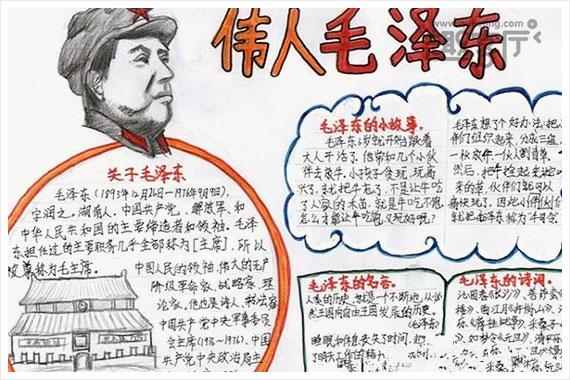 伟人毛泽东
关于毛泽东
毛泽东(1893年12月26日-1976年9月9日),
字润之,湖南人。中国共产党、解放军、和
中华人民共和国的主要缔造者和领袖。毛泽
东担任过的主要职务几乎全部称为[主席],所以
被尊称为毛主席。
中国人民的领袖,伟大的无产
阶级革命家、战略家、理
论家。他也是诗人、书法家
中国共产党中央军事委员
会主席(1936-1976),中国
共产党中央政治局主
毛泽东的小故事。
毛泽东6岁就开始跟着
大人干活了。他常和几个小伙
伴去放牛。小孩子贪玩,玩高
兴了,就把牛忘了,不是让牛吃
了人家的禾苗,就是牛吃不饱。
怎么才能让牛吃饱,又玩好呢?
毛泽东想了个好办法:把小
们组织起来,分成三
一伙放牛,一伙割青草
然后,把拾起来
来的草,伙伴们就可以
痛快玩了。因此小伙伴们
就把毛泽东称为“牛司令”
毛泽东的名言。
人类的历史,就是一个不断地从必
然王国向自由王国发展的历史。
(毛泽东)
睡眠和休息丧失了时间,却
了明天工作的精力
毛泽东的诗词。
沁园春《长沙》、菩萨蛮
楼》、西江月《井冈山》